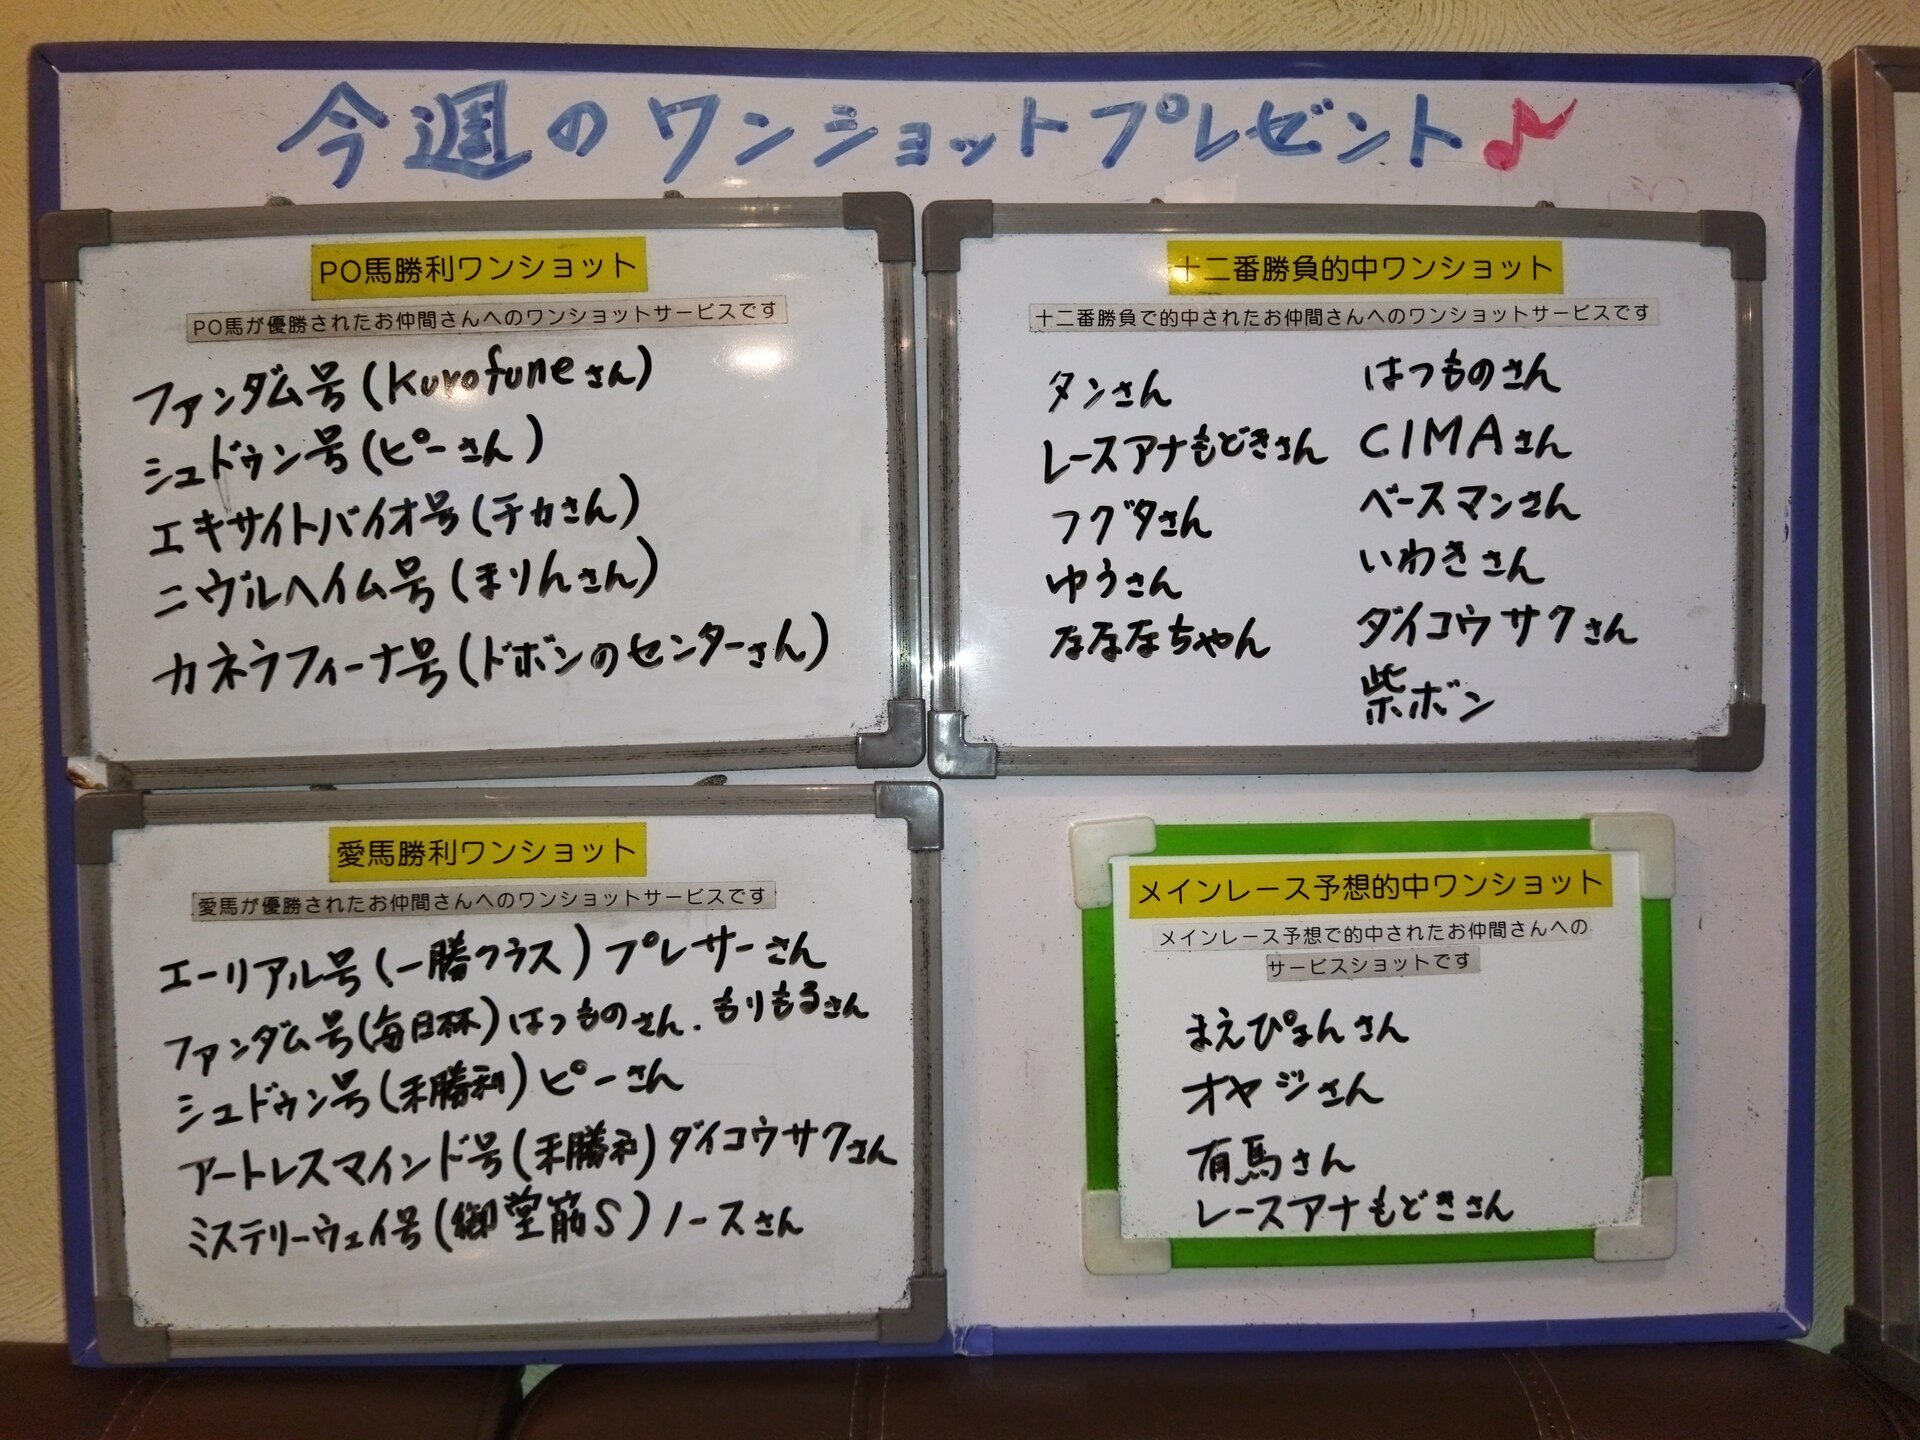 今週のワンショットプレゼント♪
PO馬勝利ワンショット
PO馬が優勝されたお仲間さんへのワンショットサービスです
ファンダム号(Kurofuneさん)
シュドゥン号(ピーさん)
エキサイトバイオ号(チカさん)
ニヴルヘイム号(まりんさん)
カネラフィーナ号(ドボンのセンターさん)
十二番勝負的中ワンショット
十二番勝負で的中されたお仲間さんへのワンショットサービスです
タンさん
レースアナもどきさん
フグタさん
ゆうさん
なななちゃん
はつものさん
CIMAさん
ベースマンさん
いわきさん
ダイコウサクさん
柴ボン
愛馬勝利ワンショット
愛馬が優勝されたお仲間さんへのワンショットサービスです
エーリアル号(一勝クラス)プレサーさん
ファンダム号(毎日杯)はつものさん.もりもるさん
シュドゥン号(未勝利)ピーさん
アートレスマインド号(未勝利)ダイコウサクさん
ミステリーウェイ号(御堂筋S)ノースさん
メインレース予想的中ワンショット
メインレース予想で的中されたお仲間さんへの
サービスショットです
まえぴょんさん
オヤジさん
有馬さん
レースアナもどきさん